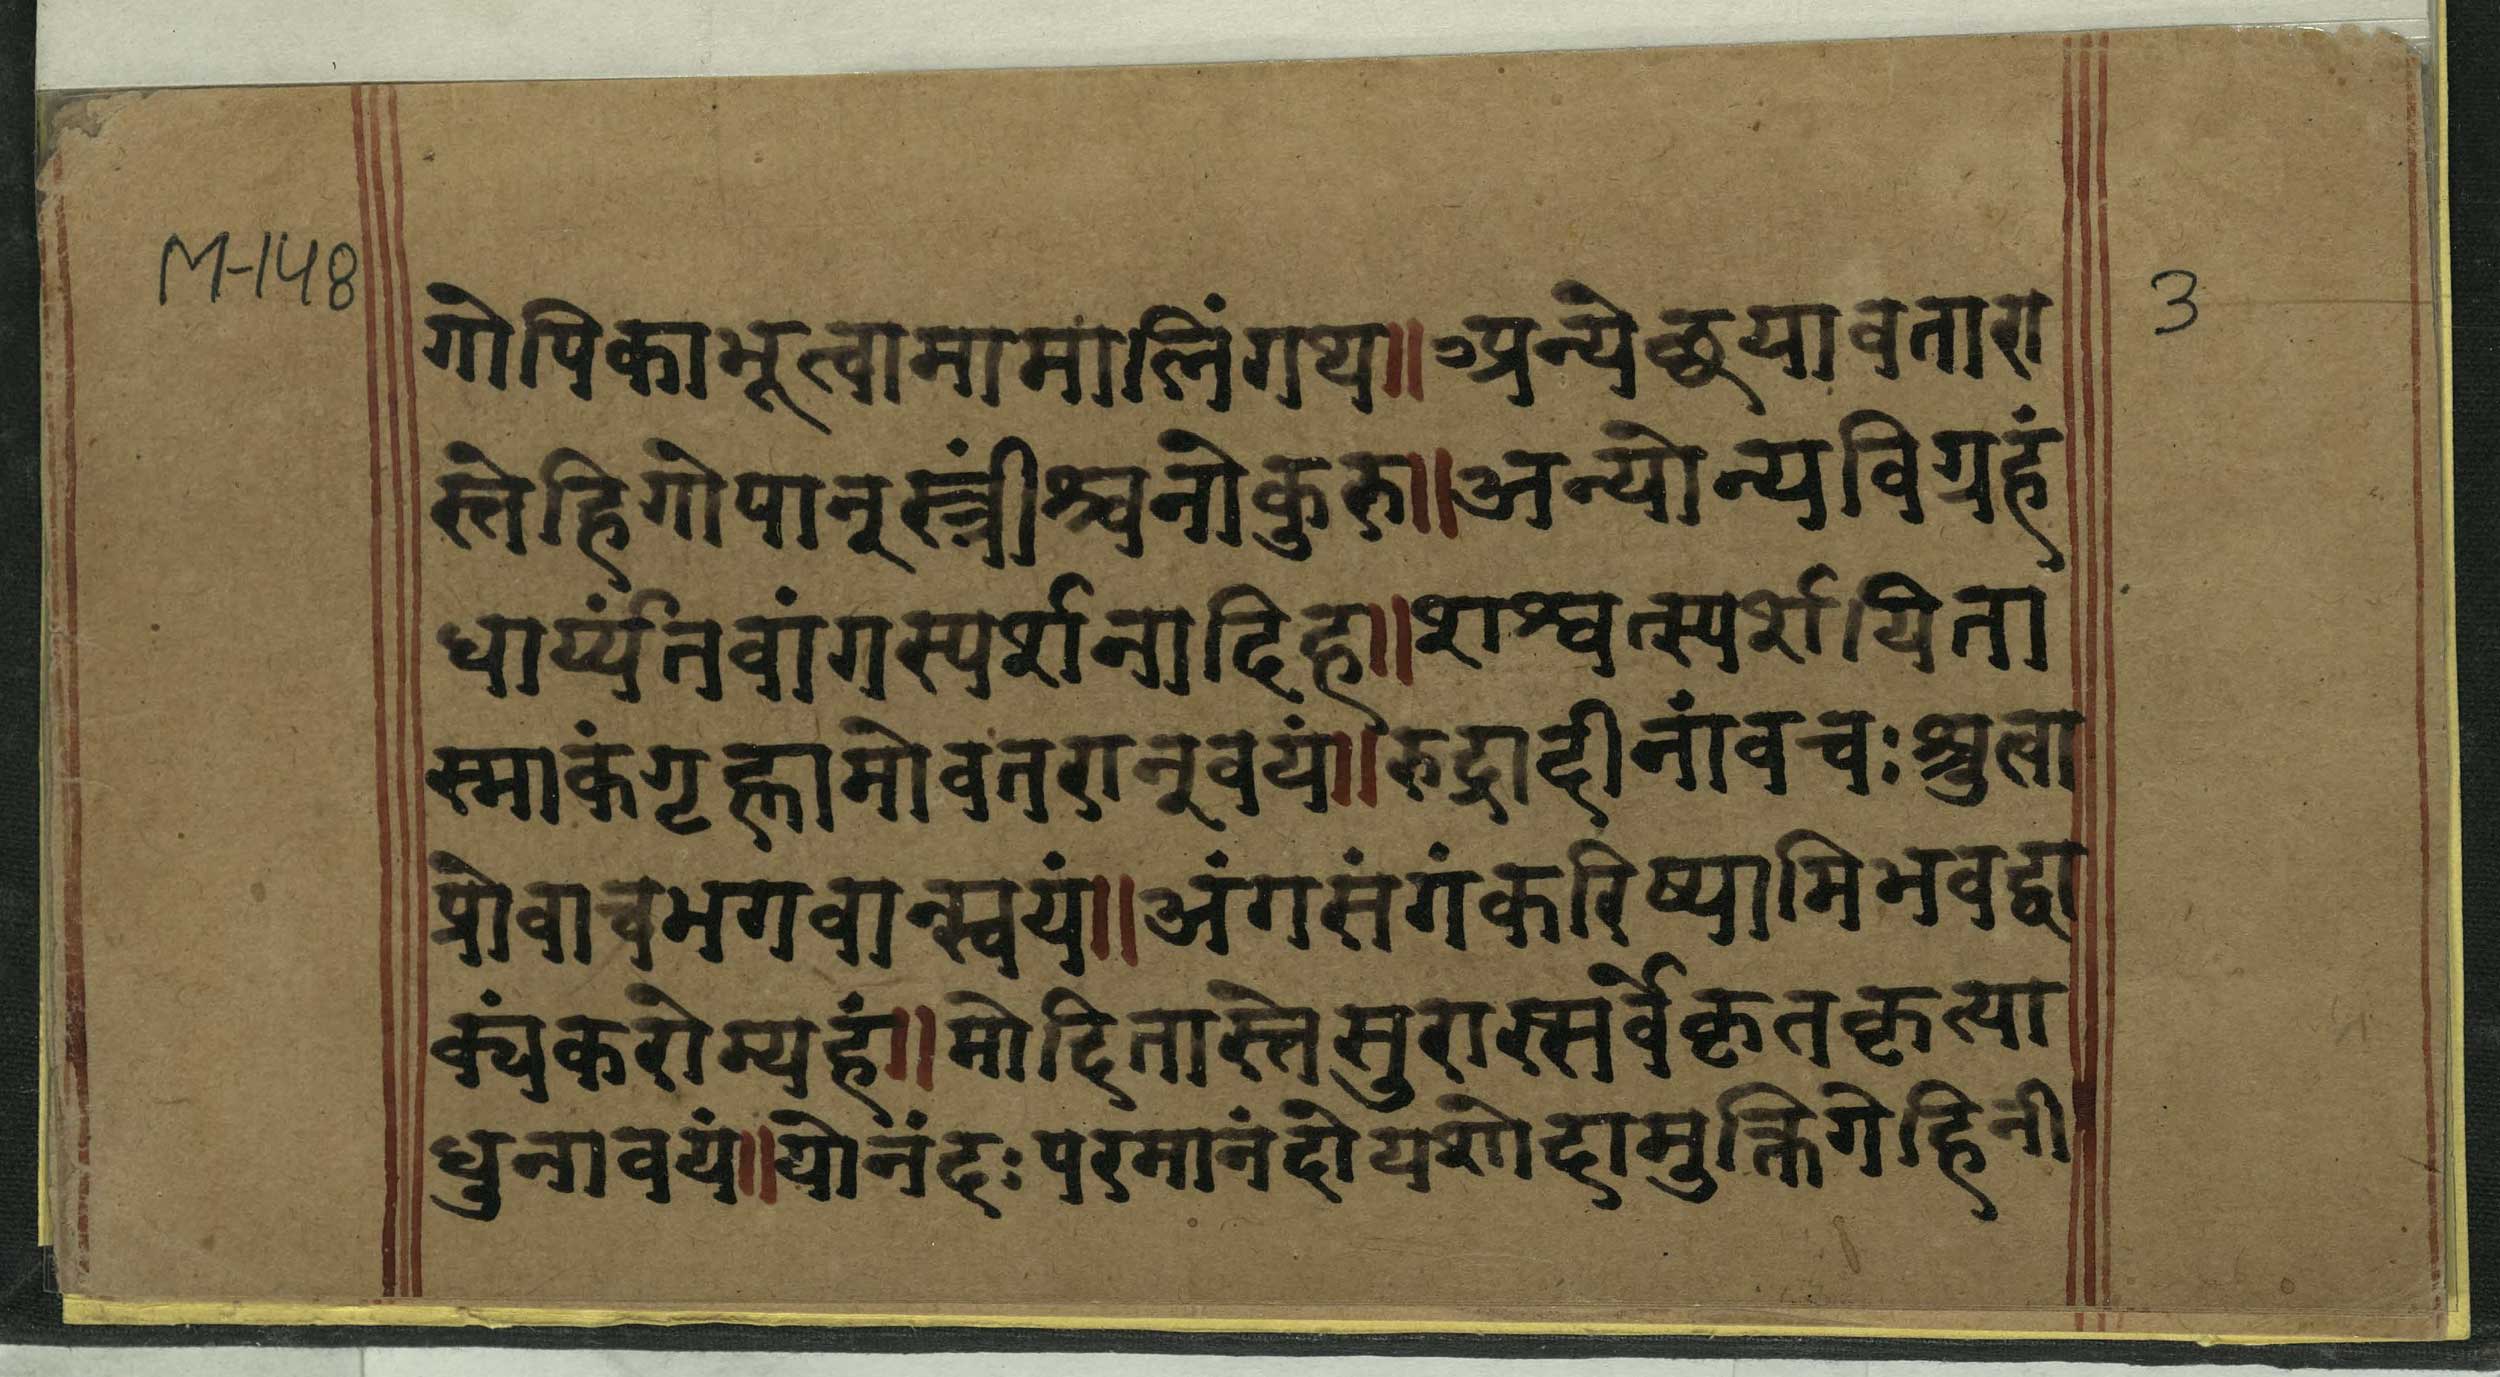 M-148
3
गोपिकाभूत्वामामालिंगथ॥ ऽप्रन्येछ्रयावतारा
स्तेहिगोपान्स्त्रींश्चनोकुरु॥अन्योन्यविग्रहं
धार्य्यंतवांगस्पर्शनादिह॥शश्वत्स्पर्शयिता
स्माकंगृह्णामोवतरान्वयं॥रुद्रादीनांवचःश्रुत्वा
प्रोवाचभगवान्स्वयं॥अंगसंगंकरिष्यामिभवद्वा
क्यंकरोम्यहं॥मोदितास्तेसुरास्सर्वेकृतकृत्या
धुनावयं॥योनंदःपरमानंदोयशोदामुक्तिगेहिनी